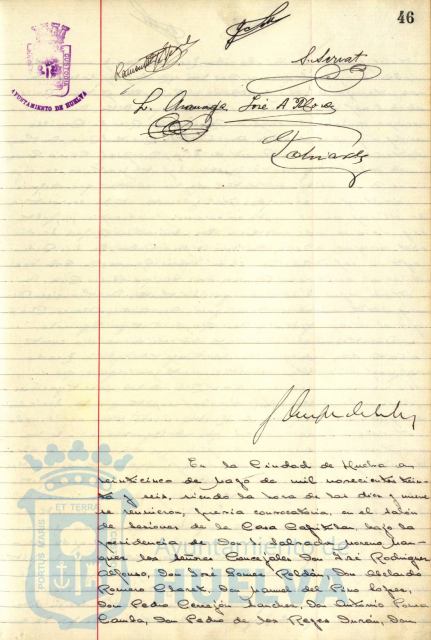 46
AYUNTAMIENTO DE HUELVA
S. Servat
José A.
En la Ciudad de Huelva a
veinticinco de Mayo de mil novecientos trein-
ta y seis, siendo la hora de las diez y nueve
se reunieron, previa convocatoria, en el salón
de sesiones de la Casa Capitular, bajo la
presidencia de Don Salvador Moreno Már-
quez los señores Concejales, Don José Rodríguez
Alfonso, Don José Gómez Roldán, Don Abelardo
Romero Claret, Don Manuel del Pino López,
Don Pedro Cerrejón Sánchez, Don Antonio Ponce
Don Pedro de los Reyes Durán, Don
PORTUS MARIS ET TERRAE
Ayuntamiento de
HUELVA